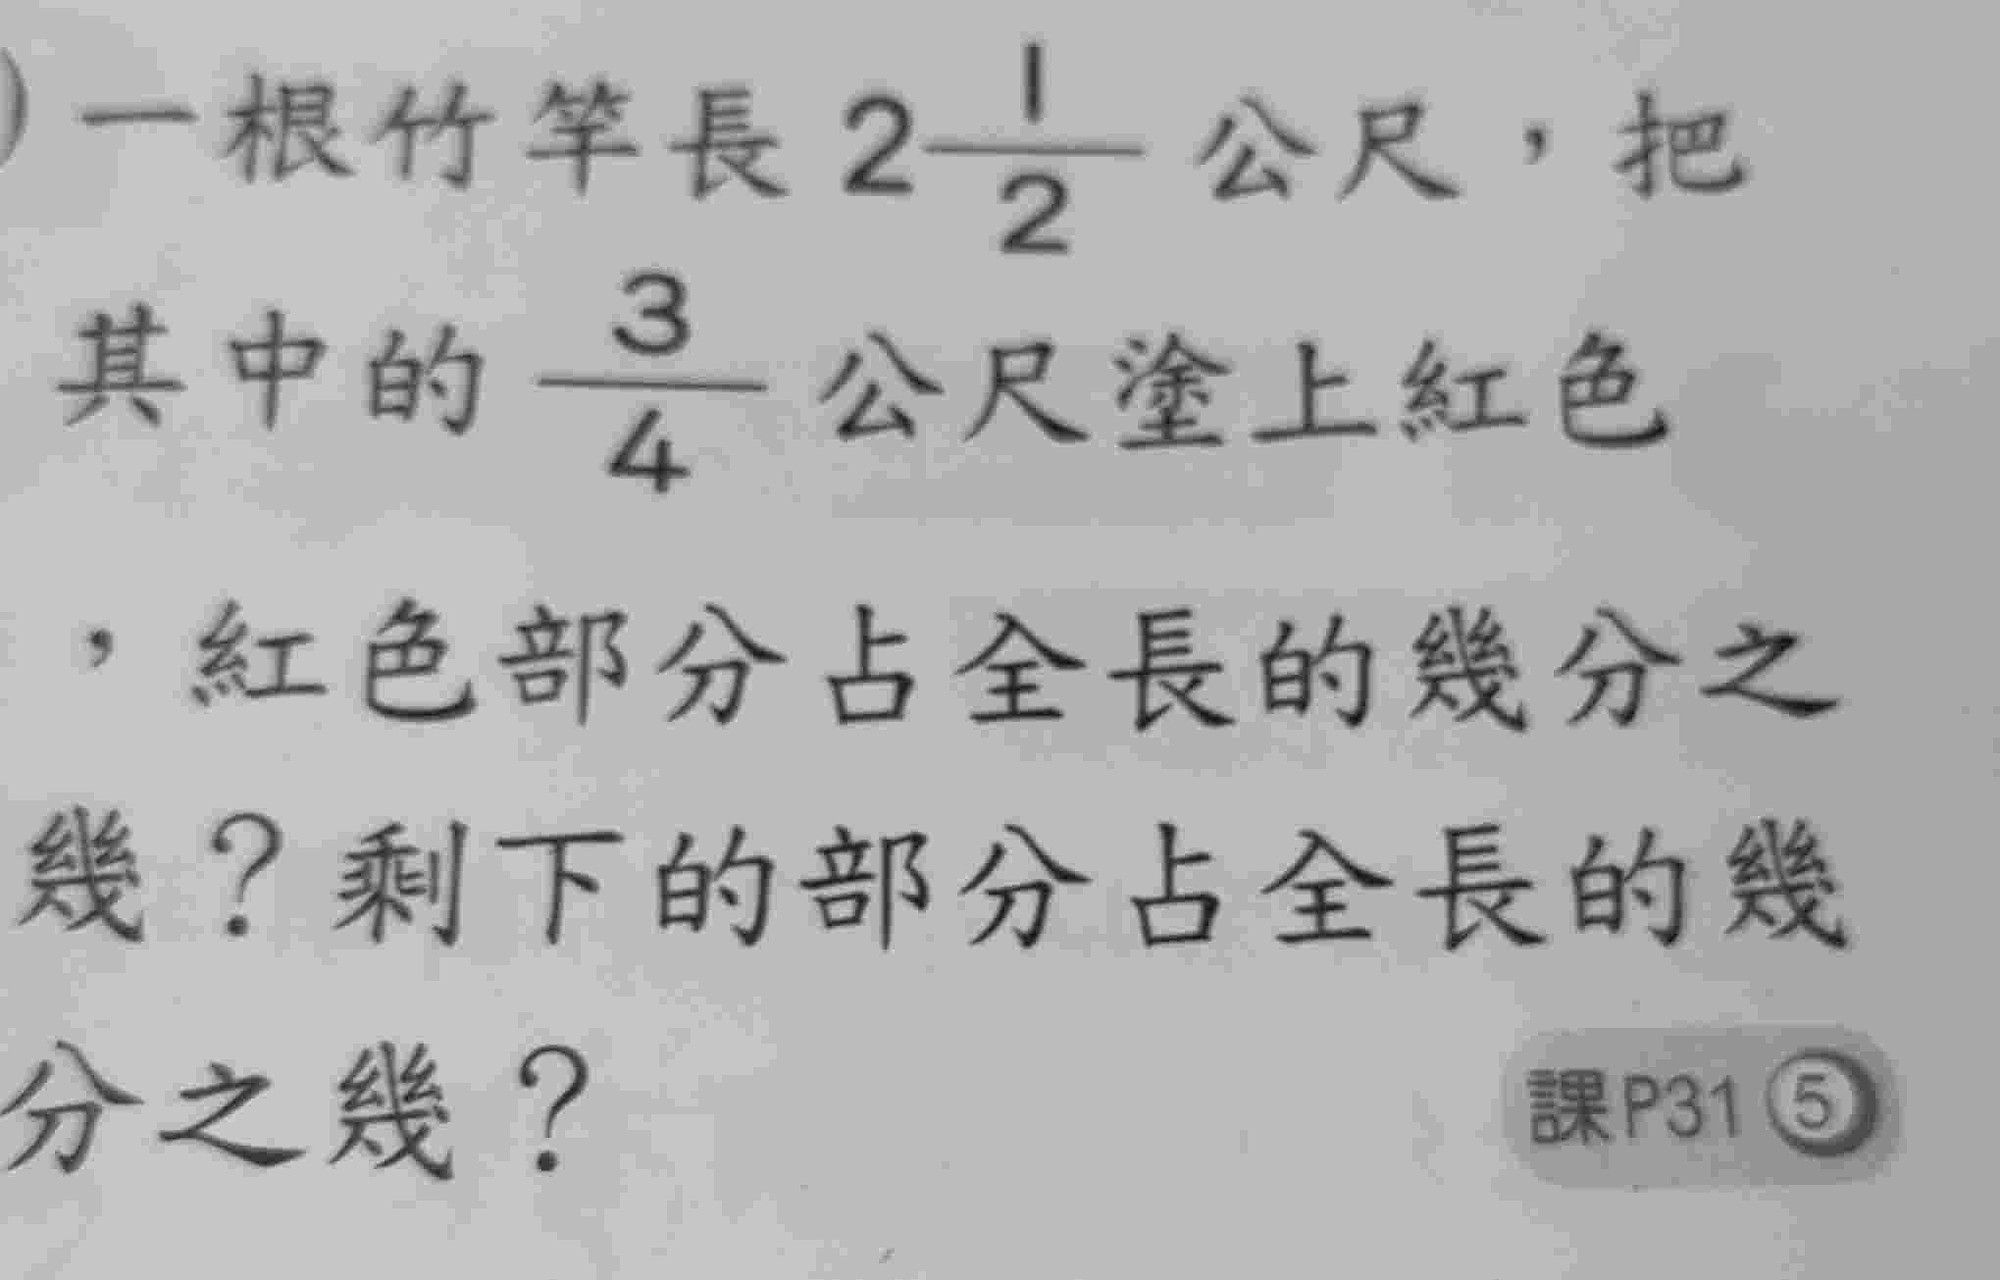 )一根竹竿長 2 1/2 公尺，把
其中的 3/4 公尺塗上紅色
，紅色部分占全長的幾分之
幾？剩下的部分占全長的幾
分之幾？
課P31 ⑤